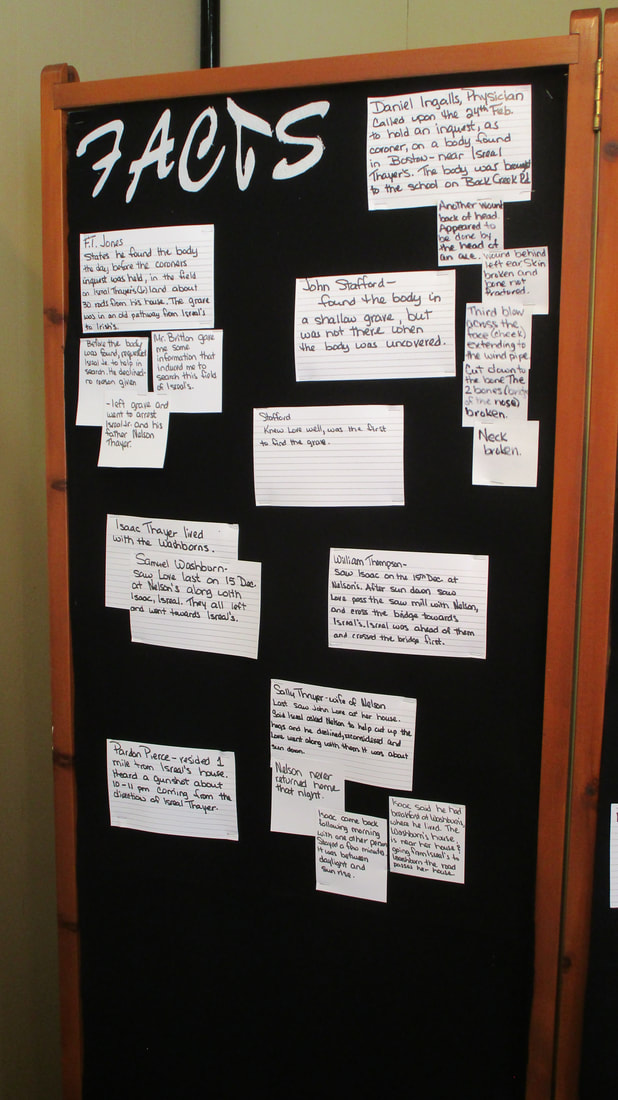 FACTS
Daniel Ingalls, Physician
Called upon the 24th Feb.
to hold an inquest, as
coroner, on a body found
in Boston-near Israel
Thayer's. The body was brought
to the school on Back Creek Rd.
Another wound
back of head.
Appeared to
be done by
the head of
an axe.
wound behind
left ear. Skin
broken and
bone not
fractured.
Third blow
across the
face (cheek)
Extending to
the wind pipe.
Cut down to
the bone The
2 bones
of the nose)
broken.
Neck
broken.
F.T. Jones
States he found the body
the day before the coroners
inquest was held, in the field
on Israel Thayer's land about
30 rods from his house. The grave
was in an old pathway from Israel's
to Irish's.
Before the body
was found, requested
Israel Jr. to help in
search. He declined-
no reason given
Mr. Britton gave
me some
information that
induced me to
search this field
of Israel's.
-left grave and
went to arrest
Israel Jr. and his
father Nelson
Thayer.
John Stafford-
found the body in
a shallow grave, but
was not there when
the body was uncovered.
Stafford
Knew Love well, was the first
to find the grave.
Isaac Thayer lived
with the Washborns.
Samuel Washburn-
saw Love last on 15 Dec.
at Nelson's along with
Isaac, Israel. They all left
and went towards Israel's.
William Thompson-
Saw Isaac on the 15th Dec. at
Nelson's. After sun down saw
Love pass the saw mill with Nelson,
and cross the bridge towards
Israel's. Israel was ahead of them
and crossed the bridge first.
Sally Thayer-wife of Nelson
Last saw John Love at her house.
Said Israel asked Nelson to help cut up the
hogs and he declined, reconsidered and
Love went along with them. It was about
sun down.
Nelson never
returned home
that night.
Isaac came back
following morning
with one other person
Stayed a few minutes.
It was between
daylight and
sun rise.
Isaac said he had
breakfast at Washborn's,
where he lived. The
Washborn's house
is near her house &
going from Israel's to
Washborn the road
passes her house.
Pardon Pierce-resided 1
mile from Israel's house.
Heard a gunshot about
10-11 pm coming from the
direction of Israel Thayer.